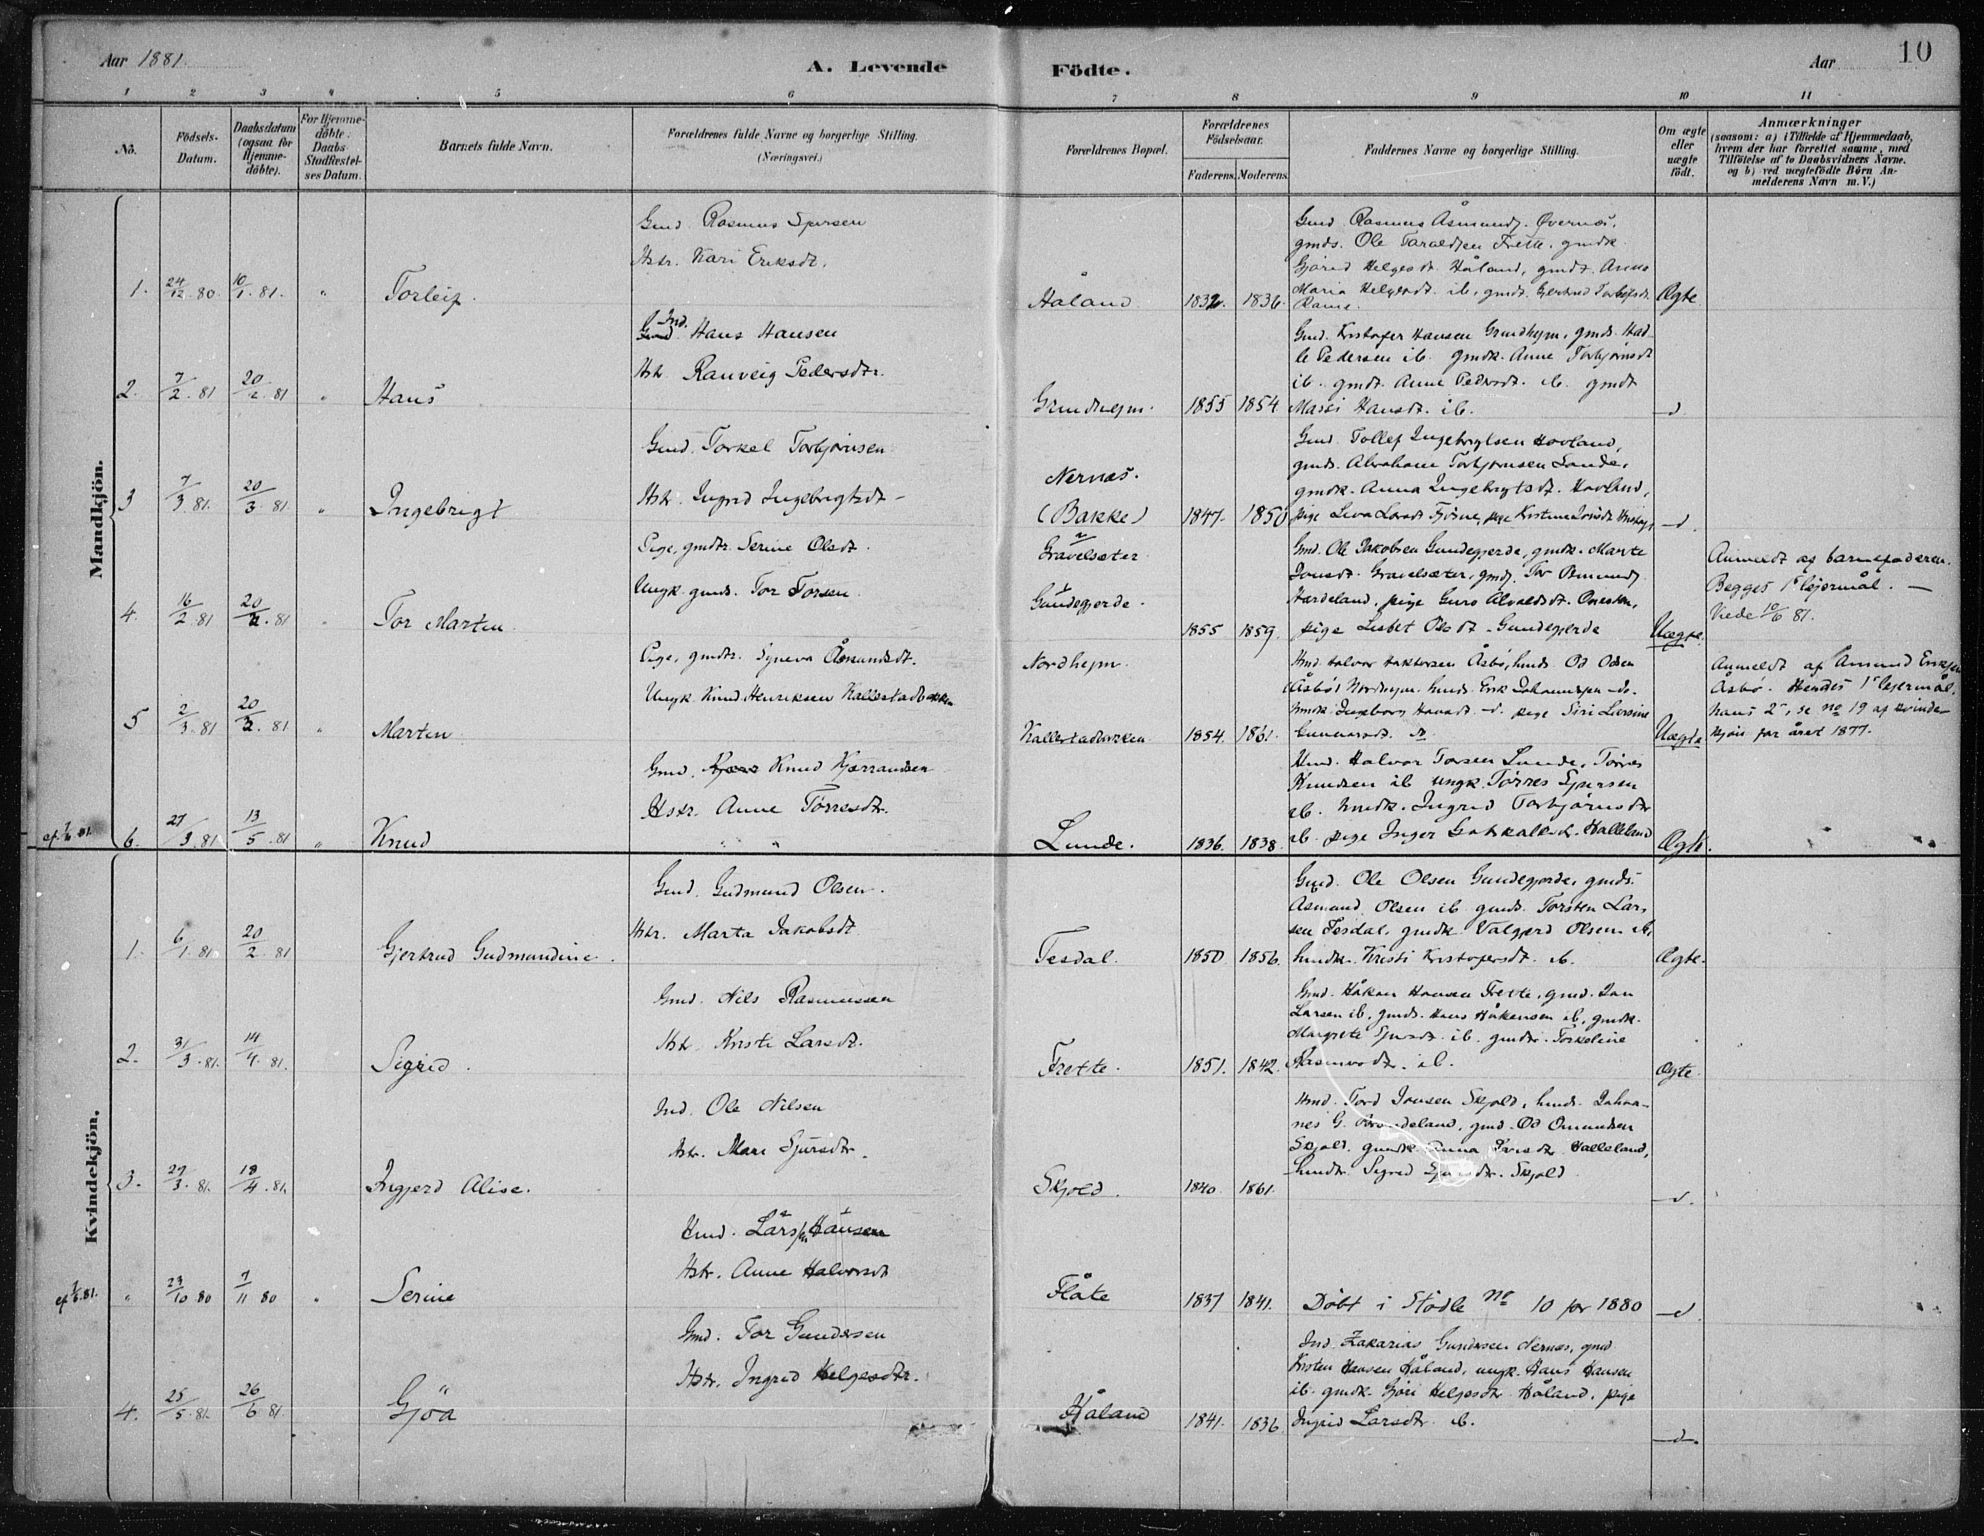 Aar 1881.
A. Levende
Födte.
Aar
10
1
2
3
4
5
6
7
8
9
10
11
No.
Födsels-
Datum.
Daabsdatum
(ogsaa for
Hjemme-
döbte).
For Hjemme-
döbte.
Daabs-
Stadfæstel-
ses Datum.
Barnets fulde Navn.
Forældrenes fulde Navne og borgerlige Stilling.
(Næringsvei.)
Forældrenes Bopæl.
Forældrenes
Födselsaar.
Faderens.
Moderens.
Faddernes Navne og borgerlige Stilling.
Om ægte
eller
uægte
födt.
Anmærkninger
(saasom: a) i Tilfælde af Hjemmedaab,
hvem der har forrettet samme, med
Tilföielse af to Daabsvidners Navne.
og b) ved uægtefödte Börn An-
melderens Navn m.V.)
Mandkjön.
1. 24/12 80 10/1 81. " Torleif.
Gmd. Rasmus Sjursen
Hstr. Kari Eriksdt.
Håland 1832 1836.
Gmd. Rasmus Åsmunds. Øvernæs,
gmds. Ole Taraldsen Frette, gmdk.
Gjörid Helgesdt. Håland, gmdt. Anna
Maria Helgesdt. ib, gmdt. Gjertrud
Ægte
2. 7/2 81 20/2 81 " Hans
Ind. Hans Hansen
Hstr. Ranveig Pedersdtr.
Grindhejm. 1855 1854
Gmd. Kristofer Hansen Grindhejm, gmds. Had-
le Pedersen ib. gmdk. Anne Torbjörnsdt
ib. gmdt. Anne Pedersdt. ib. gmdt
Hansdt. ib.
-d
3 7/3 81. 20/3 81. " Ingebrigt
Gmd. Torkel Torbjörnsen
Hstr. Ingrid Ingebrigtsdt -
Nernæs.
(Bakke) 1847. 1850
Gmd. Tollef Ingebrigtsen Hovland,
gmds. Abraham Torbjörnsen Lunde,
gmdk. Anna Ingebrigtsdt. Hovland,
-d.
4. 16/2 81 20/2. 81 " Tor Martin.
Pige, gmdtr. Serine Olsdt.
Ungk. gmds. Tor Torsen.
Gravelsæter
Gundegjerde. 1855 1859.
Gmd. Ole Jakobsen Gundegjerde, gmdk. Marte
Jonsdt. Gravelsæter, gmds. Tor
pige Lisbet Olsdt. Gundegjerde
Uægte.
Anmeldt af barnefaderen.
Begges 1ste lejermål. -
Viede 10/6 81.
5 2/3 81 20/3. 81 " Martin
Pige, gmdtr. Syneva Åsmundsdt.
Ungk Knud Henriksen Kallestadbakken
Nordhejm.
Kallestadbakken 1854. 1861.
Hmd. Halvor Åsbö, hmds. Od Odsen
(Åsbö) Nordhejm. hmds. Erik Johannesen do.
hmdk. Ingeborg -d. pige Siri Larsine
Gunnarsdt. ib.
Uægte
Anmeldt af Amund
Åsbö. Hendes 1ste lejermål.
hans 2det, se no 19 af kvinde-
kjön for året 1877.
ef. 81. 6. 27/3 81 13/5 81 " Knud
Gmd. Knud Kjærrandsen
Hstr. Anne Törresdtr.
" "
Lunde. 1836. 1838.
Hmd. Halvor Torsen Lunde, Törres
Knudsen ib ungk. Törres Sjursen
ib. hmdk. Ingrid Torbjörnsdtr
ib. pige Inger Halleland
Ægte.
Kvindekjön.
1. 6/1 81. 20/2 81 Gjertrud Gudmundine.
Gmd. Gudmund Olsen.
Hstr. Marta Jakobsdt
Tesdal. 1850 1856.
Gmd. Ole Olsen Gundegjerde, gmds.
Asmund Olsen ib gmds. Torsten Lar-
sen Tesdal, gmdk Valgjerd Olsen ib,
hmdtr. Kristi Kristofersdt. ib.
Ægte.
2. 31/3 81. 14/4. 81. Sigrid.
Gmd. Nils Rasmussen
Hstr. Kristi Larsdt.
Frette. 1851. 1842.
Gmd. Håkon Hansen Frette, gmd. Jan
Larsen ib, gmds. Hans Håkensen ib, gmdk.
Margrete Sjursdt. ib. gmdtr. Torkeline
Rasmusdtr. ib.
Ægte.
3. 27/3 81. 18/4 81. Ingjerd Alise.
Ind. Ole Nilsen
Hstr. Mari Sjursdtr.
Skjold. 1840. 1861.
Hmd. Tord Jonsen Skjold, hmds. Johan-
nes G. gmd. Od Omundsen
Skjold. gmdk. Anna Halleland,
hmdtr. Sigrid Skjold
-d.
ef 81. " 23/10 80 7/11 80 " Serine
Hmd. Lars Hansen
Hstr. Anne Halvorsdt
Flåte 1837 1841.
Döbt i Stödle no 10 for 1880
-d.
4. 25/5 81. 26/6 81. Gjöa
Gmd. Tor Gundersen
Hstr. Ingrid Helgesdtr.
Håland 1841. 1836
Ind. Zakarias Gundersen Nernæs, gmd
Kristen Hansen Håland, ungk. Hans Hansen
ib. gmdk. Gjöri Helgesdtr Håland, pige
Ingrid Larsdtr. ib.
-d.